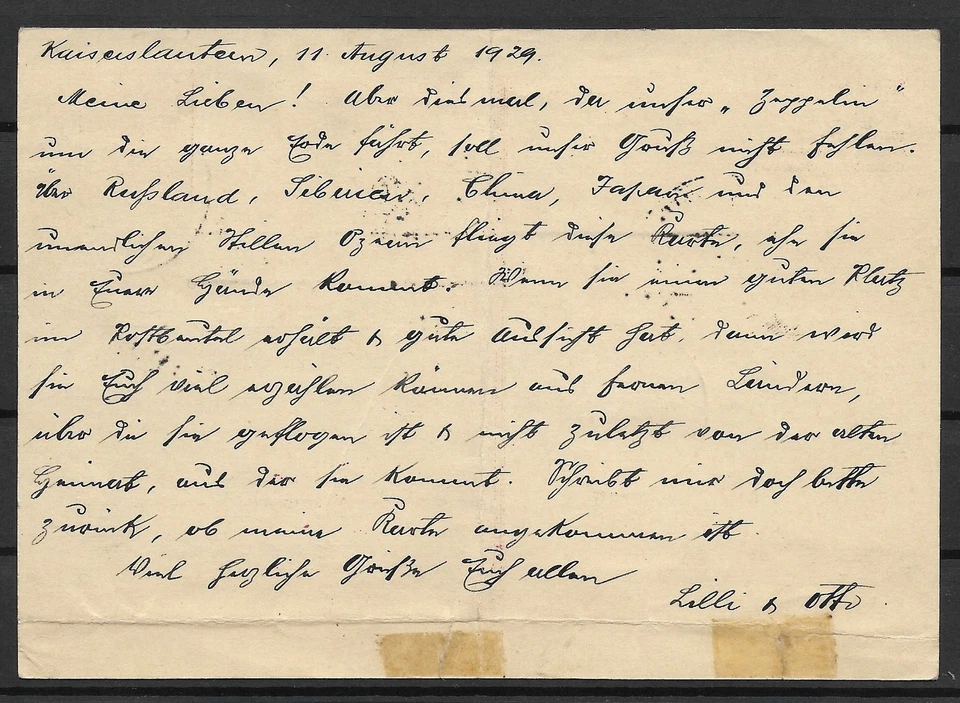 Kaiserslautern, 11. August 1929.
Meine Lieben! Aber diesmal, da unser „Zeppelin“
um die ganze Erde fährt, soll unser Gruß nicht fehlen.
Über Russland, Sibirien, China, Japan und den
unendlichen Stillen Ozean fliegt diese Karte, ehe sie
in Eure Hände kommt. Wenn sie einen guten Platz
im Postbeutel erhält & gute Aussicht hat, dann wird
sie Euch viel erzählen können aus fernen Ländern,
über die sie geflogen ist & nicht zuletzt von der alten
Heimat, aus der sie kommt. Schreibt mir doch bitte
zurück, ob meine Karte angekommen ist.
Viel herzliche Grüße Euch allen
Lilli & Otto.